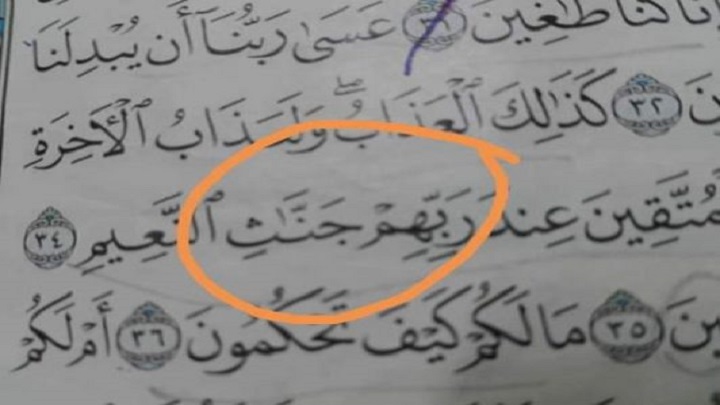 نَا كُنَّا طَٰغِينَ ٣١ عَسَىٰ رَبُّنَآ أَن يُبْدِلَنَا
نَ ٣٢ كَذَٰلِكَ ٱلْعَذَابُ ۖ وَلَعَذَابُ ٱلْأَخِرَةِ
مُتَّقِينَ عِندَ رَبِّهِمْ جَنَّٰثِ ٱلنَّعِيمِ ٣٤
ينَ ٣٥ مَا لَكُمْ كَيْفَ تَحْكُمُونَ ٣٦ أَمْ لَكُمْ